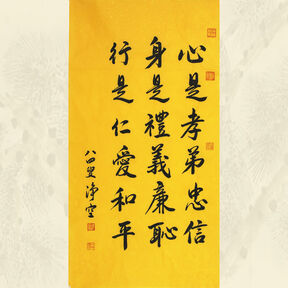 心是孝弟忠信
身是禮義廉恥
行是仁愛和平
八四叟淨空